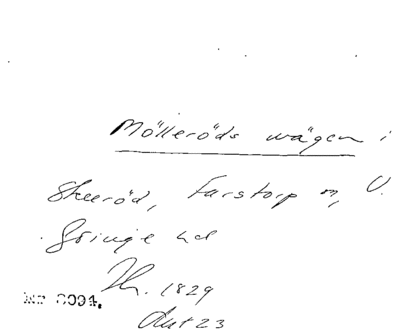 Mölleröds wägen i
Skeröd, Farstorp m, V.
Göinge hd
Th. 1829
Aut 23